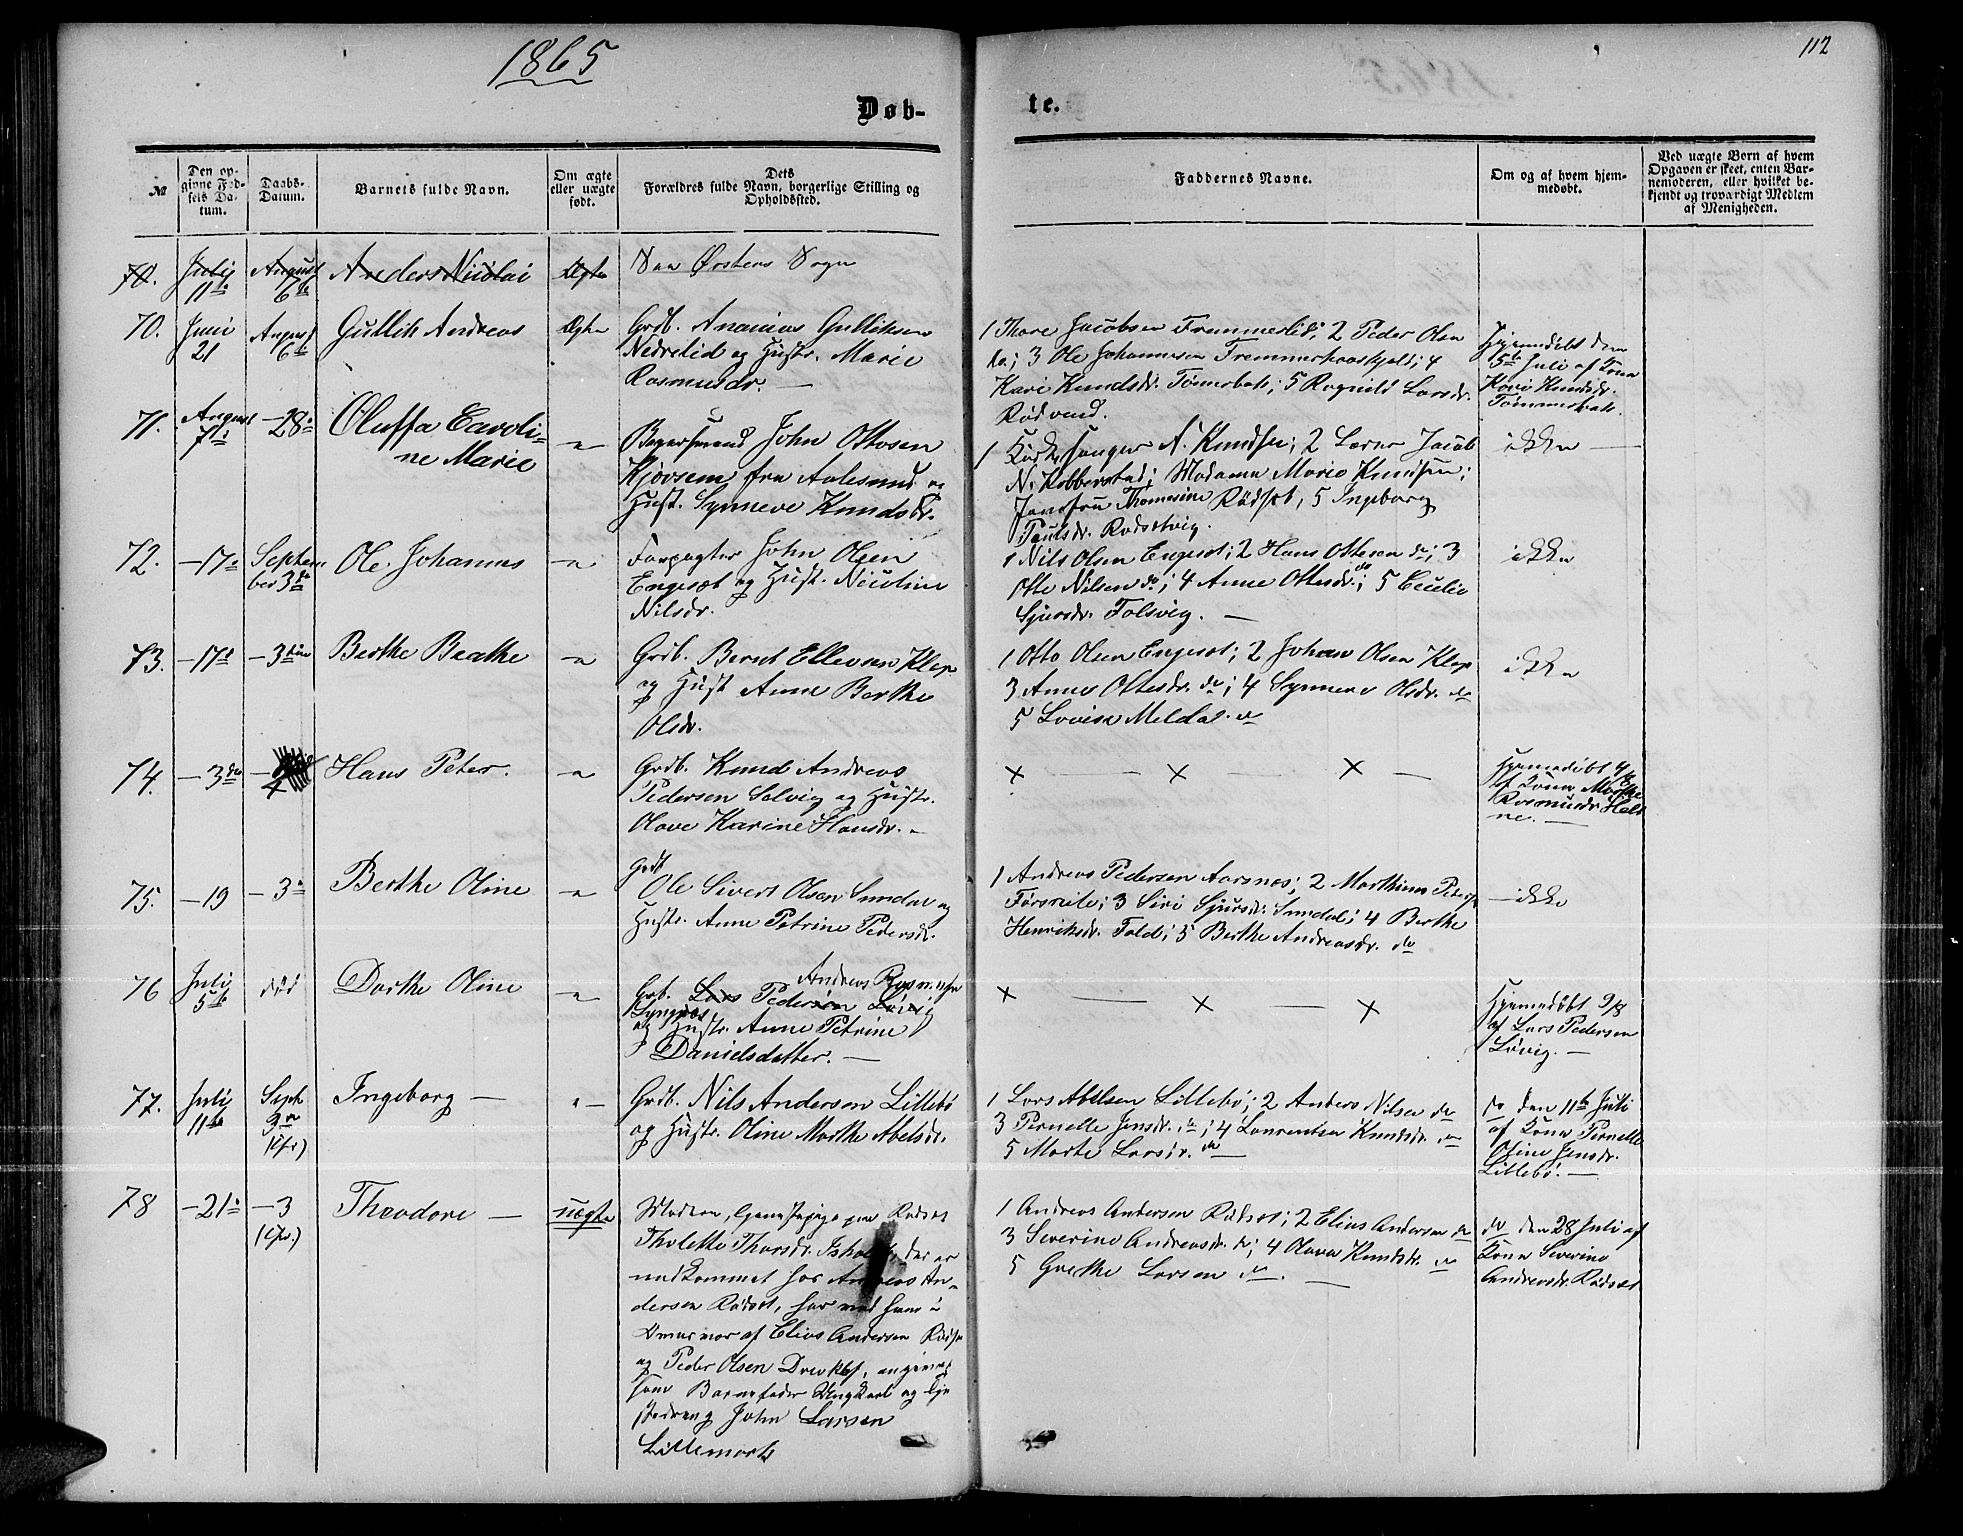 1865
112
Døb-
te.
№
Den op-
givne Fød-
sels Da-
tum.
Daabs-
Datum.
Barnets fulde Navn.
Om ægte
eller uægte
født.
Dets
Forældres fulde Navn, borgerlige Stilling og
Opholdssted.
Faddernes Navne.
Om og af hvem hjem-
medøbt.
Ved uægte Børn af hvem
Opgaven er skeet, enten Bar-
nemoderen, eller hvilket be-
kjendt og troværdigt Medlem
af Menigheden.
70.
Juli
11te
August
6te
Anders Nicolai
Ægte
Ørstens Sogn
70.
Juni
21
August
6te
Gullik Andreas
Ægte
Grdb. Ananias Gulliksen
Nedrelid og Hustr. Marie
Rasmusdr. —
1 Thore Jacobsen Fremmerlid; 2 Peder Olsen
do; 3 Ole Johannesen ; 4
Kari Knudsdr. ; 5 Ragnild Larsdr.
Rødvend.
Hjemmedøbt den
5te Juli af Kona
Kari Knudsdr.
71.
August
7de
— 28de
Oluffa Caroli-
ne Marie
—"—
John Ottosen
fra Aalesund og
Hust. Synneve Knudsdr.
1 Kirkesanger N. Knudsen; 2 Lærer Jacob
N. Kobberstad; Madama Marie Knudsen;
Jomfru Thomasine Rødset, 5 Ingeborg
Paulsdr. Rødsetvig.
ikke —
72.
— 17de
Septem-
ber 3de
Ole Johannes
—"—
Forpagter John Olsen
Engeset og Hust. Nicoline
Nilsdr.
1 Nils Olsen Engeset; 2 Hans Ottesen do; 3
Otte Nilsen do; 4 Anne Ottesdr. do; 5 Cecilie
Sjursdr. Folsvig. —
ikke
73.
— 17de
— 3die
Berthe Beathe
—"—
Grdb. Bernt Ellevsen Klep
og Hust Anne Berthe
Olsdr.
1 Otto Olsen Engeset; 2 Johan Olsen Klep
3 Anne Ottesdr. do; 4 Synneve Olsdr. do
5 Lovise Meldal. do
ikke
74.
— 3de
4
Hans Peter.
—"—
Grdb. Knud Andreas
Pedersen Solvig og Hustr.
Olave Karine Hansdr. —
× — × — × —
Hjemmedøbt 4/8
af Kona Marthe
Rasmusdr.
ne. —
75.
— 19
— 3de
Berthe Oline
—"—
Grdb
Ole Sivert Olsen Sundal og
Hustr. Anne Petrine Pedersdr.
1 Andreas Pedersen Aarsnes; 2 Marthinus Peders.
; 3 Siri Sjursdr. Sundal; 4 Berthe
Henriksdr. Fold; 5 Berthe Andreasdr. do
— ikke
76
Juli
5te
død
Dorthe Oline
—"—
Andreas Rasmussen
Grdb. Lars Pedersen Løvig
og Hustr. Anne Petrine
Danielsdatter. —
× — × — ×
Hjemmedøbt 9/8
af Lars Pedersen
Løvig. —
77.
Juli
11te
Septr
3die
Ingeborg —
" —
Grdb. Nils Andersen Lillebø
og Hustr. Oline Marthe Abelsdr.
1 Lars Abelsen Lillebø; 2 Anders Nilsen do
3 Pernelle Jensdr. do; 4 Laurentse Knudsdr. do
5 Marte Larsdr. do
Ja den 11te Juli
af Kona Pernelle
Oline Jensdr.
Lillebø. —
78
— 21de
— 3
Theodore —
uægte
Moderen, Tjenestepige paa Rødset
Tholette Thorsdr. , der er
nedkommet hos Andreas An-
dersen Rødset, har med ham i
af Elias Andersen Rødset
og Peder Olsen , angivet
som Barnefader Ungkarl og Tje-
stedreng John Larsen
1 Andreas Andersen Rødset; 2 Elias Andersen do
3 Severine Andreasdr. do; 4 Olava Knudsdr. do
5 Grethe Larsen do. —
do den 28 Juli af
Kona Severine
Andreasdr. Rødset